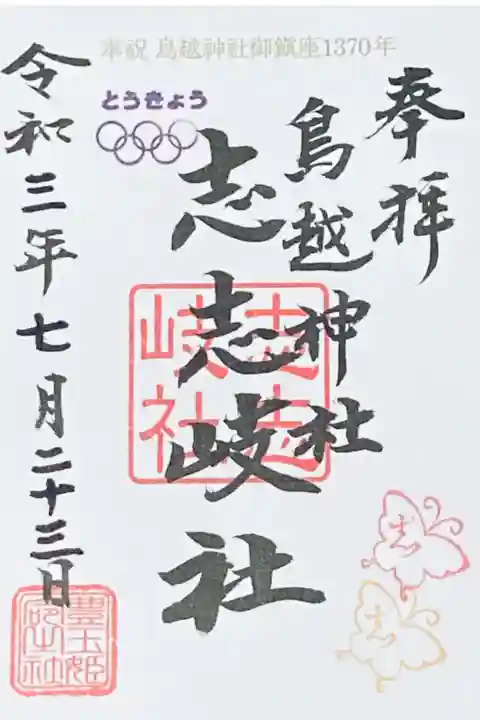 奉祝 鳥越神社御鎮座1370年
とうきょう
奉拝
鳥越神社
志志岐社
令和三年七月二十三日
志志岐社
志
志